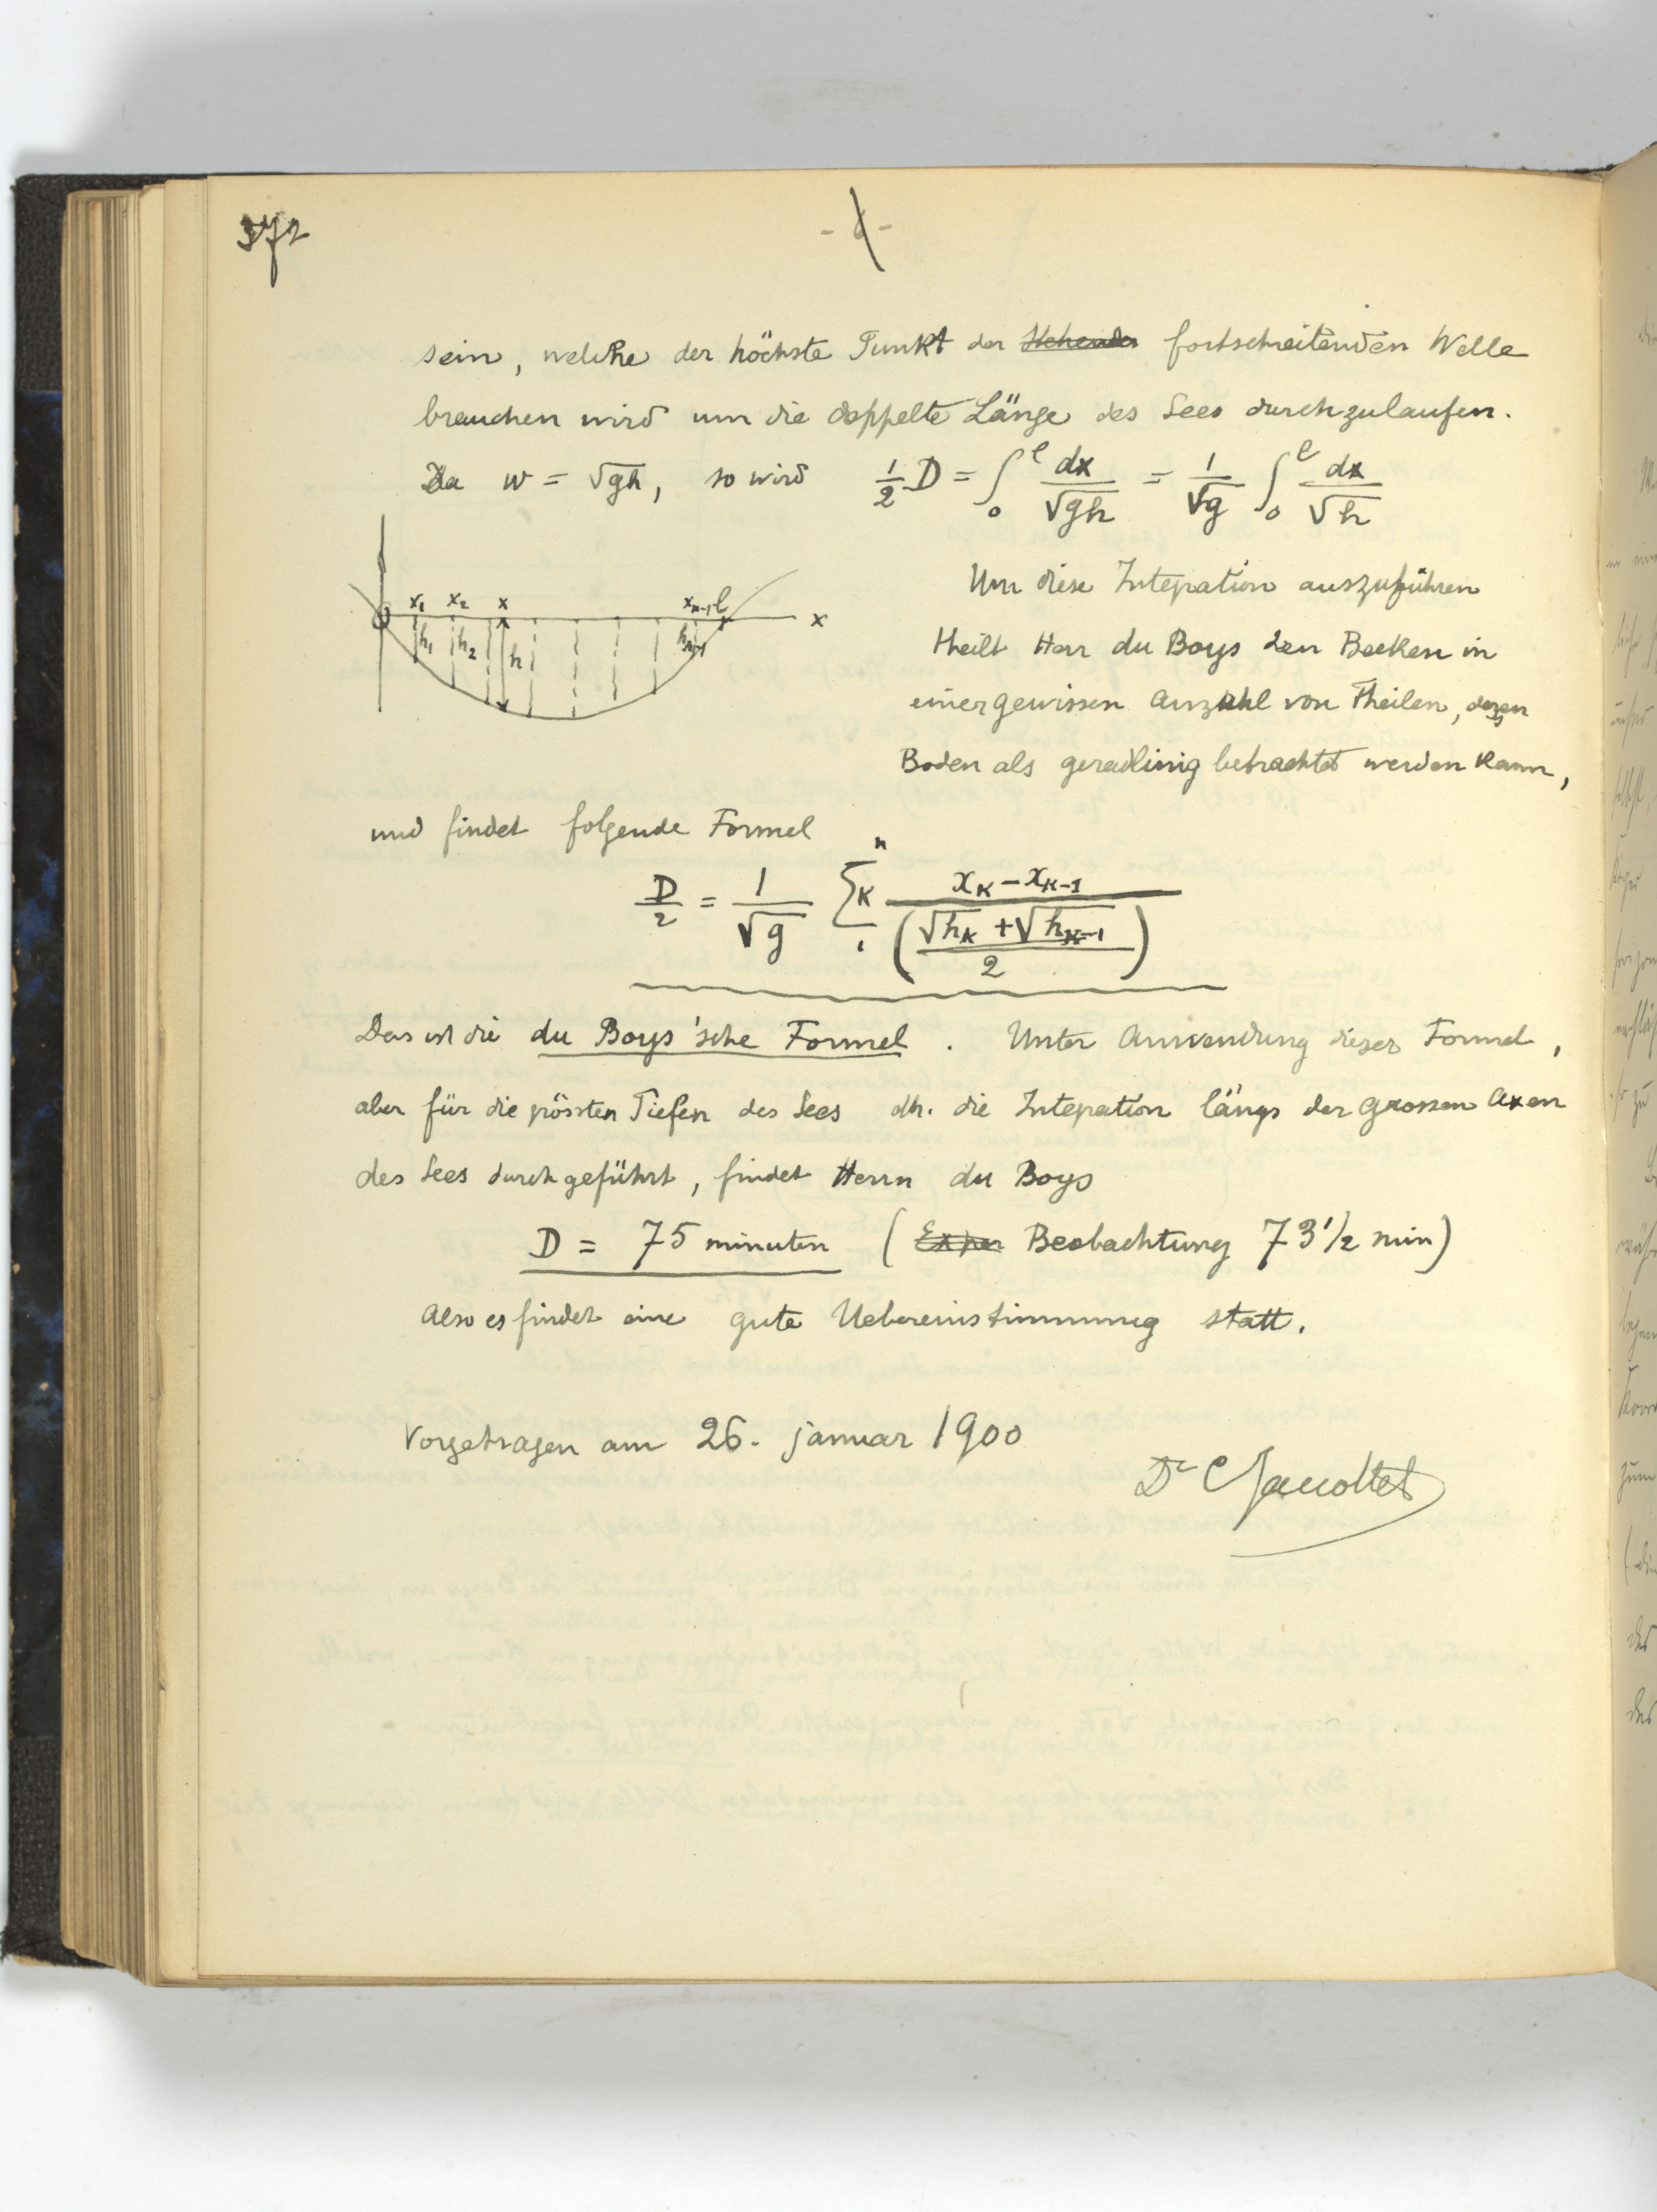 372
sein, welche der höchste Punkt der stehenden fortschreitenden Welle
brauchen wird um die doppelte Länge des Sees durchzulaufen.
Da w = √gh, so wird ½ D = ∫₀ˡ dx/√gh = 1/√g ∫₀ˡ dx/√h
x₁ x₂ x xₙ₋₁ l x
h₁ h₂ h hₙ₋₁
Um diese Integration auszuführen
theilt Herr du Boys den Becken in
einer gewissen Anzahl von Theilen, deren
Boden als geradlinig betrachtet werden kann,
und findet folgende Formel
D/2 = 1/√g Σₖ₁ⁿ (x_K − x_K−1)/((√h_K + √h_K−1)/2)
Das ist die du Boys'sche Formel. Unter Anwendung dieser Formel,
aber für die grössten Tiefen des Sees dh. die Integration längs der grossen Axen
des Sees durchgeführt, findet Herrn du Boys
D = 75 minuten (Exper Beobachtung 73 1/2 min)
Also es findet eine gute Uebereinstimmung statt.
Vorgetragen am 26. januar 1900
Dr C Jaccottet